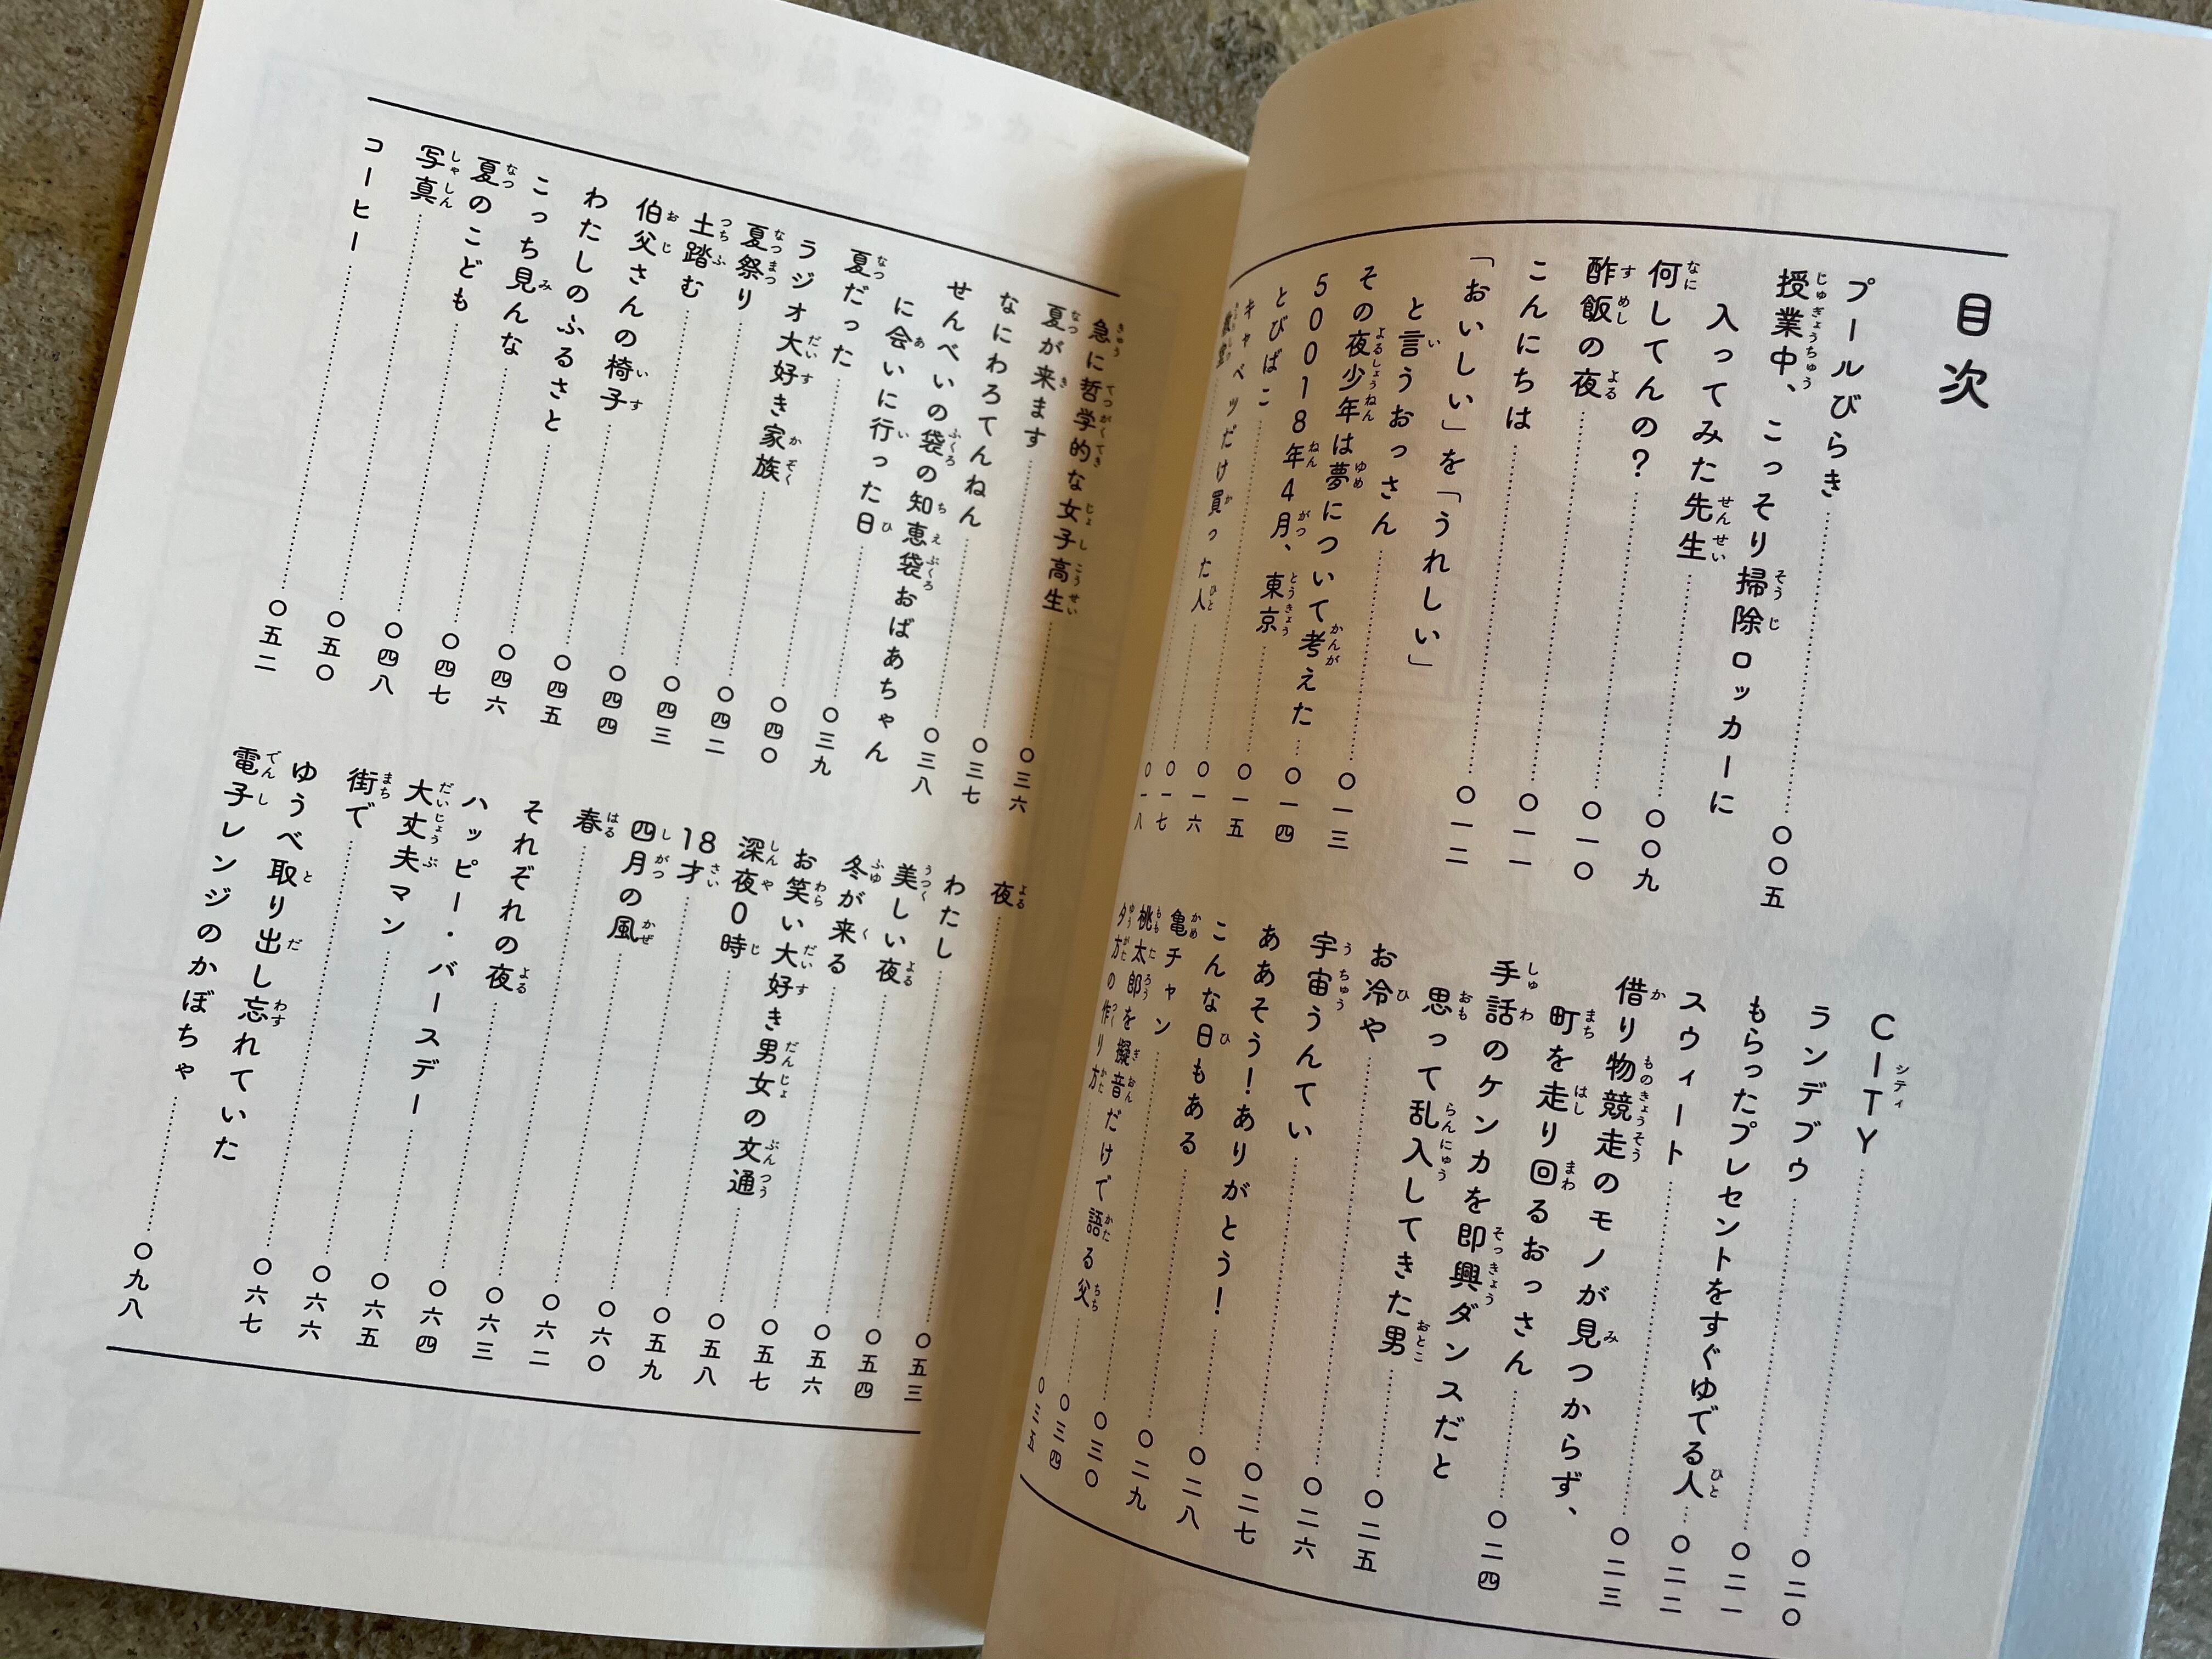 目次
プールびらき……〇〇五
授業中、こっそり掃除ロッカーに
入ってみた先生……〇〇九
何してんの?……〇一〇
酢飯の夜……〇一一
こんにちは……〇一二
「おいしい」を「うれしい」
と言うおっさん……〇一三
その夜少年は夢について考えた……〇一四
5018年4月、東京……〇一五
とびばこ……〇一六
キャベツだけ買った人……〇一七
〇一八
CITY……〇二〇
ランデブウ……〇二一
もらったプレセントをすぐゆでる人……〇二二
スウィート……〇二三
借り物競走のモノが見つからず、
町を走り回るおっさん……〇二四
手話のケンカを即興ダンスだと
思って乱入してきた男……〇二五
お冷や……〇二六
宇宙うんてい……〇二七
ああそう!ありがとう!……〇二八
こんな日もある……〇二九
亀チャン……〇三〇
桃太郎を擬音だけで語る父……〇三四
夕方の作り方……〇三五
急に哲学的な女子高生……〇三六
夏が来ます……〇三七
なにわろてんねん……〇三八
せんべいの袋の知恵袋おばあちゃん
に会いに行った日……〇三九
夏だった……〇四〇
ラジオ大好き家族……〇四二
夏祭り……〇四三
土踏む……〇四四
伯父さんの椅子……〇四五
わたしのふるさと……〇四六
こっち見んな……〇四七
夏のこども……〇四八
写真……〇五〇
コーヒー……〇五二
夜……〇五三
わたし……〇五四
美しい夜……〇五六
冬が来る……〇五七
お笑い大好き男女の文通……〇五八
深夜0時……〇五九
18才……〇六〇
四月の風……〇六二
春……〇六三
それぞれの夜……〇六四
ハッピー・バースデー……〇六五
大丈夫マン……〇六六
街で……〇六七
ゆうべ取り出し忘れていた
電子レンジのかぼちゃ……〇九八